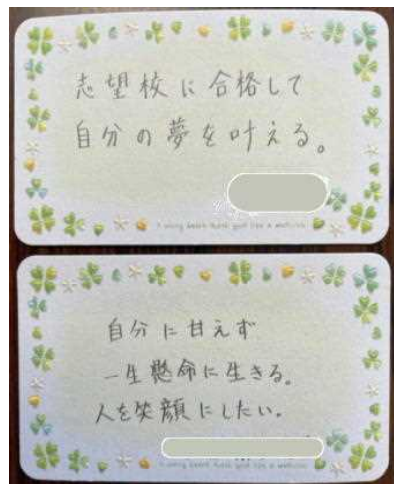 志望校に合格して
自分の夢を叶える。
自分に甘えず
一生懸命に生きる。
人を笑顔にしたい。